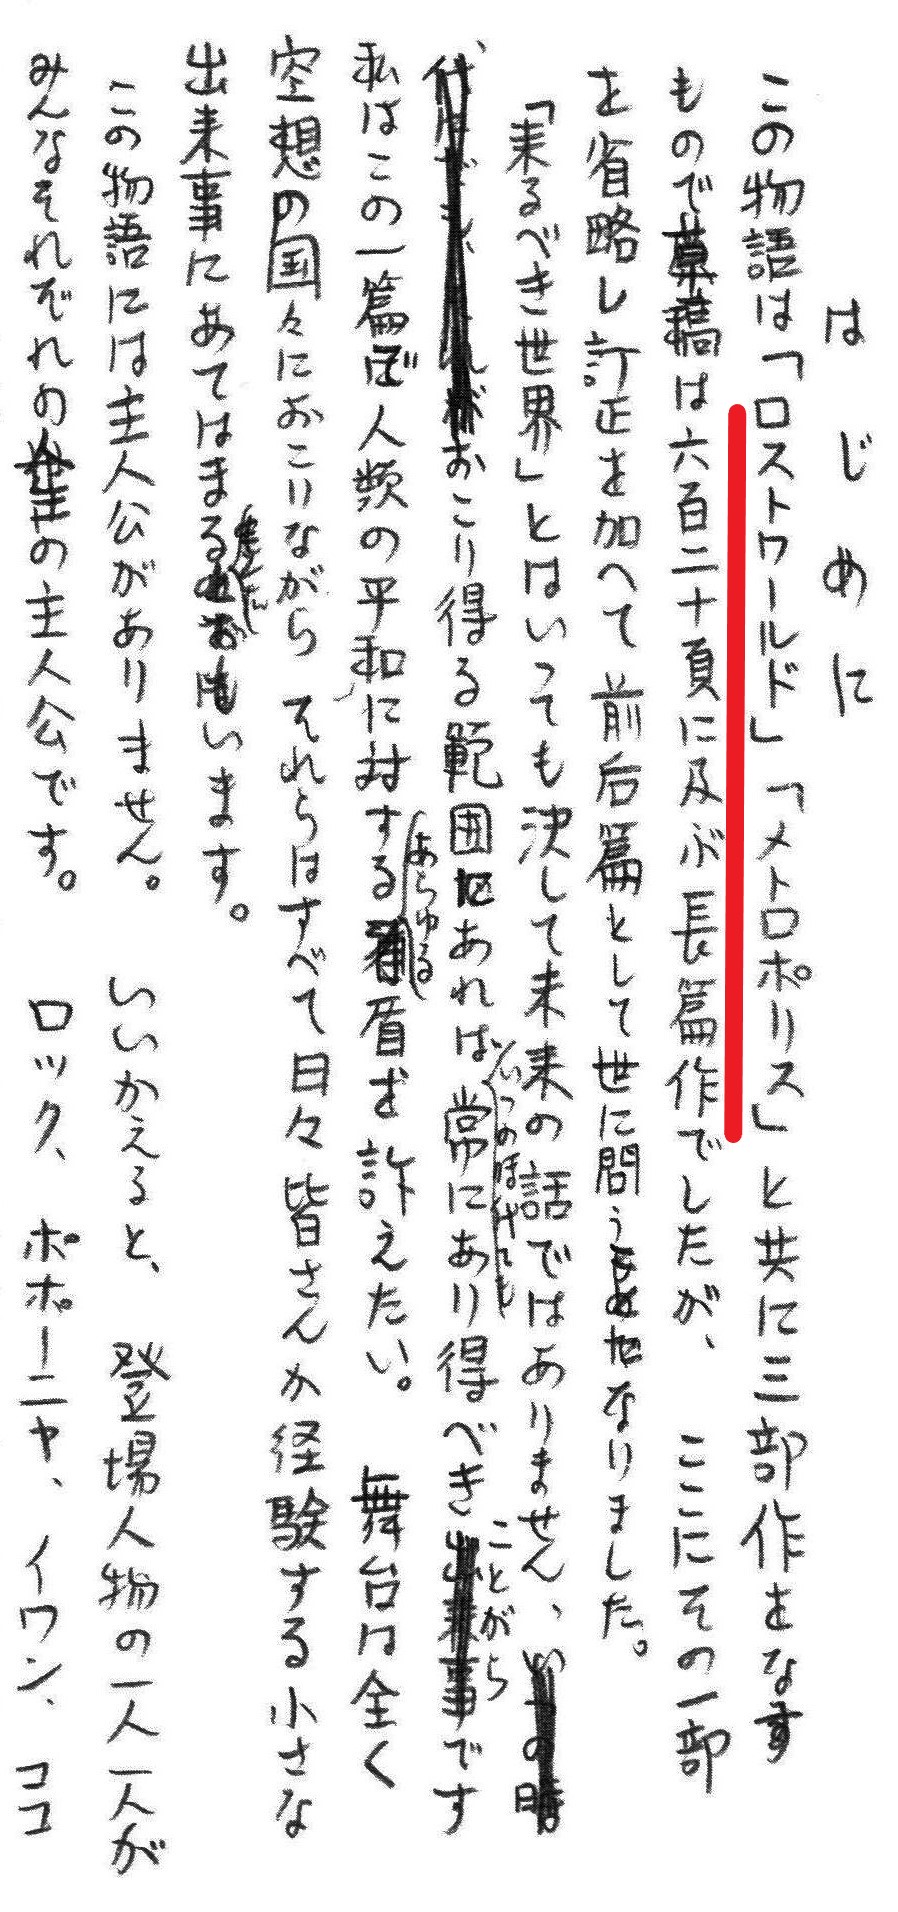 はじめに
この物語は「ロストワールド」「メトロポリス」と共に三部作をなす
もので草稿は六百二十頁に及ぶ長篇作でしたが、ここにその一部
を省略し訂正を加へて前后篇として世に問うことになりました。
「来るべき世界」とはいっても決して未来の話ではありません、いつの時
代にでも
おこり得る範囲であれば常にあり得べき出来事です
いつの時代にも
ことがら
私はこの一篇で人類の平和に対する矛盾を訴えたい。舞台は全く
あらゆる
空想の国々におこりながらそれらはすべて日々皆さんが経験する小さな
出来事にあてはまるとおもいます。
この物語には主人公がありません。いいかえると、登場人物の一人一人が
みんなそれぞれの の主人公です。ロック、ポポーニャ、イワン、ココ